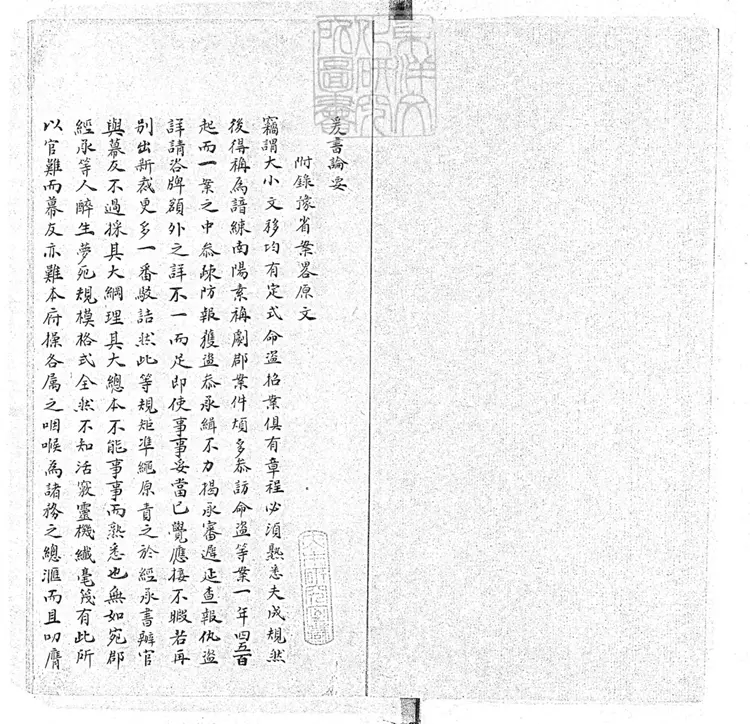 爰書論要
附錄豫省案畧原文
竊謂大小文移均有定式命盜招案俱有章程必須熟悉夫成規然
後得稱為諳練南陽素稱劇郡案件煩多恭訪命盜等案一年四五百
起而一案之中恭疎防報獲盜恭承緝不力揭承審遲延查報仇盜
詳請咨牌額外之詳不一而足即使事事妥當已覺應接不暇若再
別出新裁更多一番駁詰然此等規矩準繩原責之於經承書辦官
與幕友不過採其大綱理其大總本不能事事而熟悉也無如宛郡
經承等人醉生夢死規模格式全然不知活竅靈機纖毫筏有此所
以官難而幕友亦難本府操各属之咽喉為諸務之總滙而且叨膺
東洋文化研究所圖書